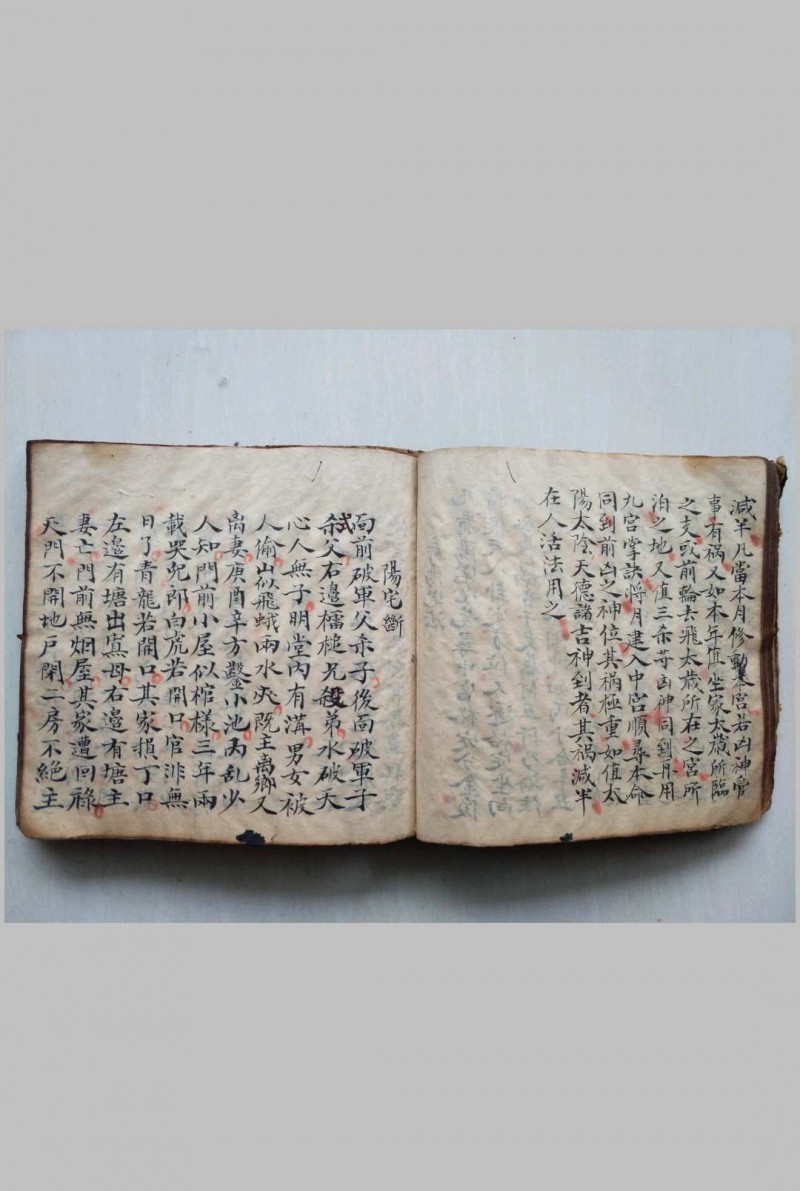 減半凡當本月修動墓宮若凶神管
事有禍又如本年值坐家太歲所臨
之支或前輪去飛太歲所在之宮所
泊之地又值三杀等凶神同到月用
九宮掌訣將月建入中宮順尋本命
同到前凶之神位其禍極重如值太
陽太陰天德諸吉神到者其禍減半
在人活法用之
陽宅斷
面前破軍父乖子後面破軍子
弑父右邊檑槌兄殺弟水破天
心人無子明堂內有溝男女被
人偷山似飛蛾兩水夾既主离鄉又
离妻庚酉辛方鑿小池丙乱少
人知門前小屋似棺樣三年兩
載哭兒郎白虎若開口官非無
日了青龍若開口其家損丁口
左邊有塘出寡母右邊有塘主
妻亡門前無烟屋其家遭回祿
天門不開地戶閉二房不絕主